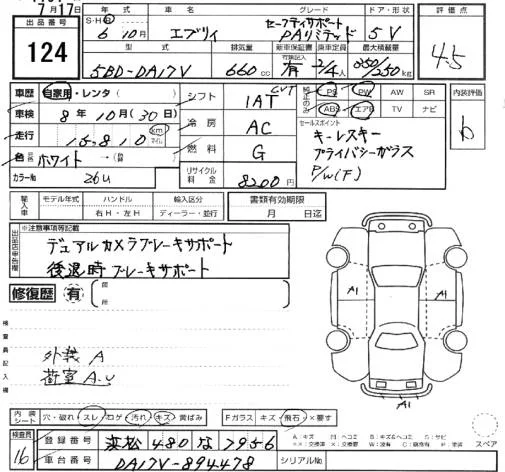 7月17日
出品番号
124
年式 車名 グレード ドア・形状
S・H・R
6年10月 エブリィ セーフティサポート PAリミテッド 5V
型式 排気量 新車保証書 乗車定員 最大積載量
5BD-DA17V 660cc 有 2/4人 350/250kg
評価点
4.5
車歴 自家用・レンタ( )
車検 8年10月(30日)
走行 15,810 km マイル
色 ホワイト →( )
カラーNo 26U
シフト CVT 1AT
冷房 AC
燃料 G
リサイクル料金 8200円
PS PW AW SR
ABS エアB TV ナビ
セールスポイント
キーレスキー
プライバシーガラス
P/W(F)
内装評価
b
輸入車
モデル年式 ハンドル 輸入区分
右H・左H ディーラー・並行
書類有効期限
月 日迄
※注意事項等記載
デュアルカメラブレーキサポート
後退時ブレーキサポート
修復歴 有
箇所
検査員記入欄
外装 A
荷室 A.U
A1
A1
内装シート
穴・破れ スレ コゲ 汚れ キズ 黄ばみ
Fガラス キズ・飛石 ×要す
スペア
検査員
16
登録番号 浜松 480 な 7956
車台番号 DA17V-894478
シリアルNo